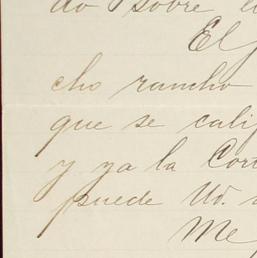 do sobre
El
cho rancho
que se cali
y ya la Cor
puede Ud.
Me